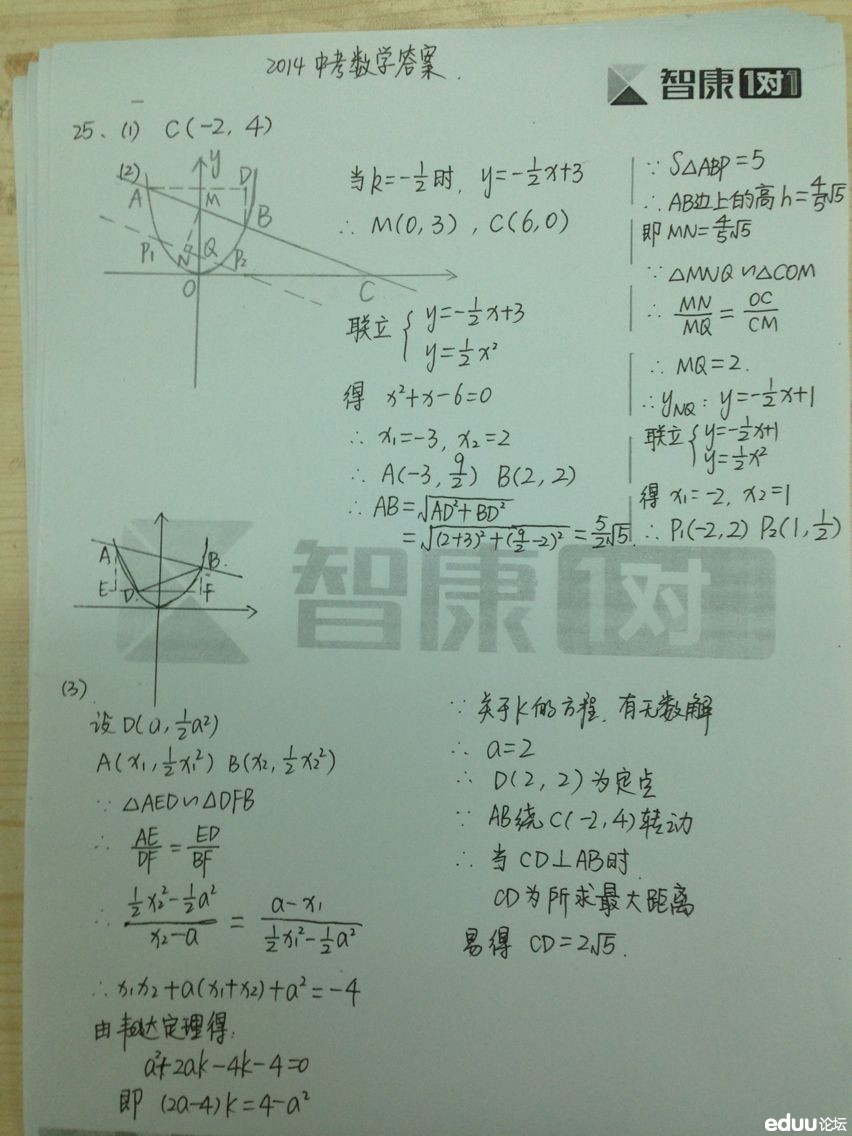 2014中考数学答案.
智康1对1
25、(1) C(-2, 4)
(2)
y
A
D
M
B
P1
N
Q
P2
O
C
当k=-1/2时, y=-1/2x+3
∴ M(0, 3) , C(6, 0)
联立{y=-1/2x+3
y=1/2x²
得 x²+x-6=0
∴ x1=-3, x2=2
∴ A(-3, 9/2) B(2, 2)
∴ AB=√(AD²+BD²)
=√((2+3)²+(9/2-2)²)=5/2√5.
∵ S△ABP=5
∴ AB边上的高h=4/5√5
即 MN=4/5√5
∵ △MNQ∽△COM
∴ MN/MQ=OC/CM
∴ MQ=2.
∴ yNQ: y=-1/2x+1
联立{y=-1/2x+1
y=1/2x²
得 x1=-2, x2=1
∴ P1(-2, 2) P2(1, 1/2)
A
B.
E
D
F
智康1对1
(3)
设D(a, 1/2a²)
A(x1, 1/2x1²) B(x2, 1/2x2²)
∵ △AED∽△DFB
∴ AE/DF=ED/BF
∴ (1/2x2²-1/2a²)/(x2-a) = (a-x1)/(1/2x1²-1/2a²)
∴ x1x2+a(x1+x2)+a²=-4
由韦达定理得;
a²+2ak-4k-4=0
即 (2a-4)k=4-a²
∵ 关于k的方程, 有无数解
∴ a=2
∴ D(2, 2)为定点
∵ AB绕C(-2, 4)转动
∴ 当CD⊥AB时
CD为所求最大距离
易得 CD=2√5.
eduu论坛